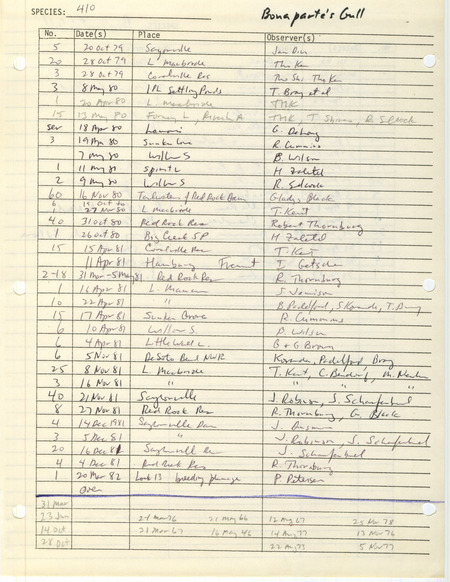 SPECIES: 410 Bonaparte's Gull
No. Date(s) Place Observer(s)
5 20 Oct 79 Saylorville Jim Din
20 28 Oct 79 L. Macbride
3 28 Oct 79 Coralville Res
3 8 May 80 Settling Ponds T. Bray et al
1 20 Apr 80 L. Macbride THK
15 13 May 80 THK, T. Shires,
18 Apr 80 Lamoni G.
3 19 Apr 80 Sunken Grove R. Cummins
7 May 80 Willow S B. Wilson
1 11 May 80 Spirit L H Zaletel
2 9 May 80 Willow S R. Silcock
60 16 Nov 80 Red Rock Res Gladys Black
6 27 Nov 80 L. Macbride T. Kent
40 31 Oct 80 Red Rock Res Robert Thornburg
1 26 Oct 80 Big Creek SP H Zaletel
15 15 Apr 81 Coralville Res T. Kent
11 Apr 81 Hamburg Fremont
2-18 31 Mar-5 May 81 Red Rock Res R. Thornburg
1 16 Apr 81 L. Manawa J. Jamison
10 22 Apr 81 " B. Padelford,
15 17 Apr 81 Sunken Grove R. Cummins
6 10 Apr 81 Willow S. B. Wilson
6 4 Apr 81 Little Wall L. G + G Brown
6 5 Nov 81 DeSoto Bend NWR Padelford Bray
25 8 Nov 81 L. Macbride T. Kent, C. Bendorf,
3 16 Nov 81 " " "
40 21 Nov 81 Saylorville J. Robinson, J. Schaufenbuel
8 27 Nov 81 Red Rock Res R. Thornburg, G. Black
4 14 Dec 1981 Saylorville Dam J.
3 5 Dec 81 " J. Robinson, J. Schaufenbuel
20 16 Dec 81 Saylorville Res J. Schaufenbuel
4 4 Dec 81 Red Rock Res R. Thornburg
1 20 Mar 82 Lock 13 breeding plumage P. Petersen
over
31 Mar
23 Jun 24 Mar 76 21 May 66 12 May 67 25 Nov 78
14 Oct 21 Mar 67 16 May 46 14 Aug 77 13 Nov 76
28 Oct 22 Aug 77 5 Nov 77